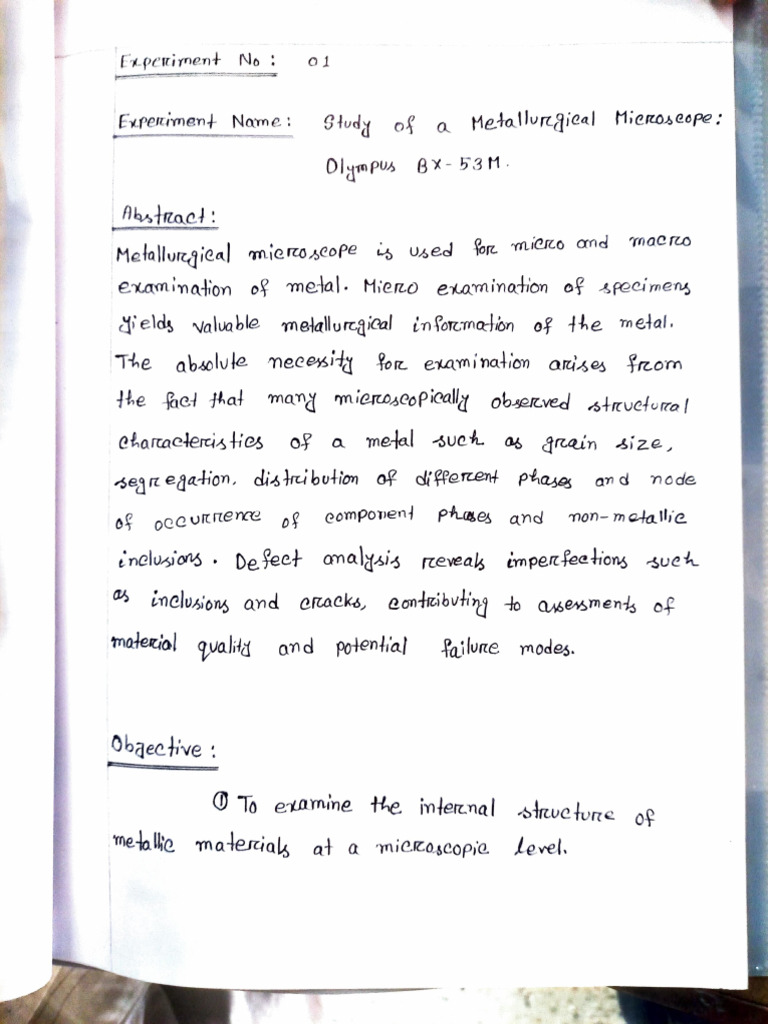 Experiment No : 01
Experiment Name : Study of a Metallurgical Microscope :
Olympus BX-53M.
Abstract :
Metallurgical microscope is used for micro and macro
examination of metal. Micro examination of specimens
yields valuable metallurgical information of the metal.
The absolute necessity for examination arises from
the fact that many microscopically observed structural
characteristics of a metal such as grain size,
segregation, distribution of different phases and node
of occurrence of component phases and non-metallic
inclusions. Defect analysis reveals imperfections such
as inclusions and cracks, contributing to assesments of
material quality and potential failure modes.
Objective :
① To examine the internal structure of
metallic materials at a microscopic level.